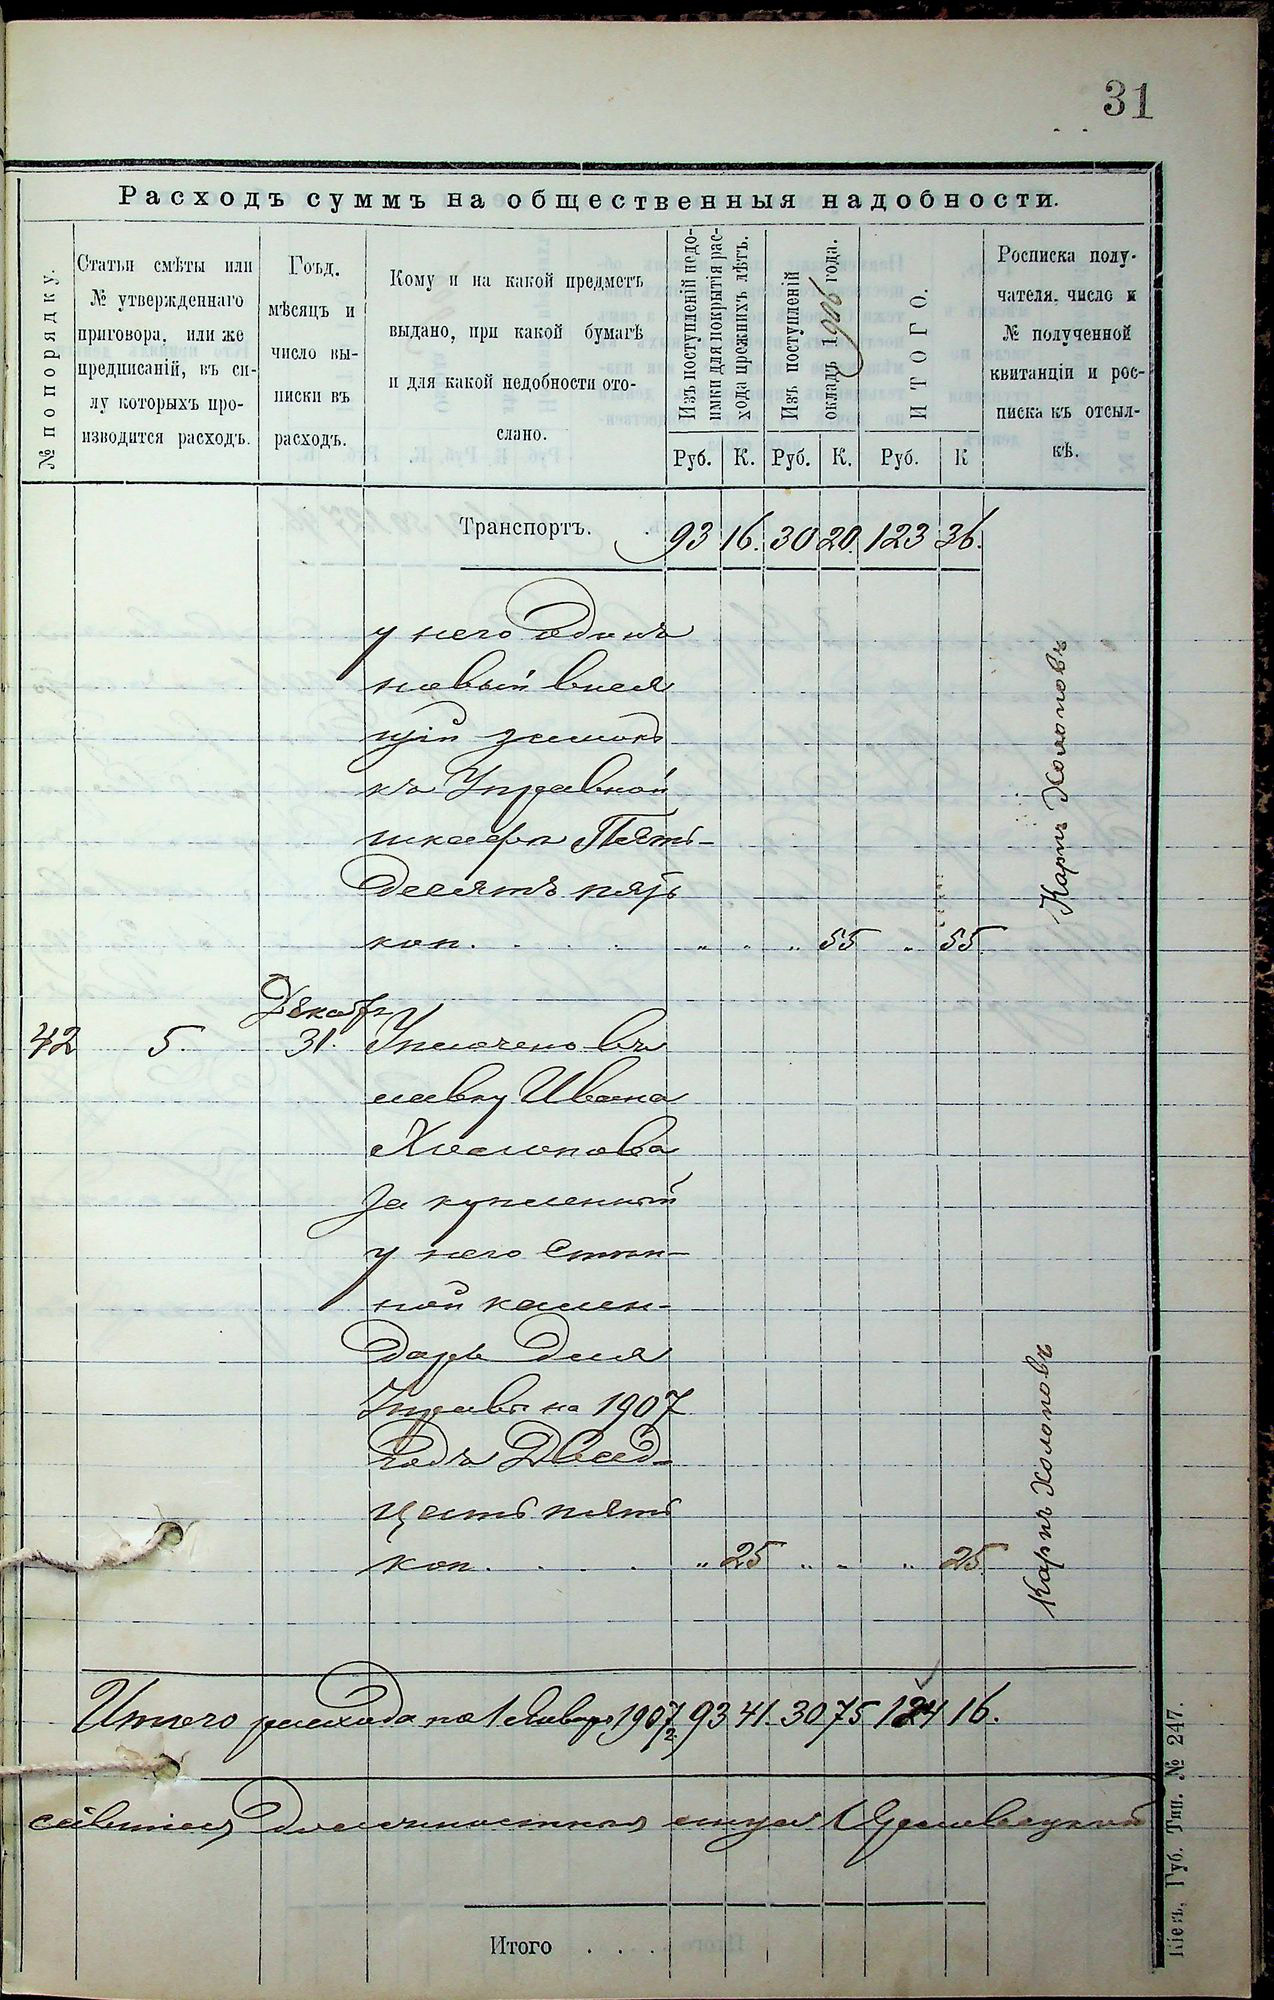 31
Расходъ суммъ на общественныя надобности.
№ по порядку.
Статьи смѣты или
№ утвержденнаго
приговора, или же
предписаній, въ си-
лу которыхъ про-
изводится расходъ.
Гоъд.
мѣсяцъ и
число вы-
писки въ
расходъ.
Кому и на какой предметъ
выдано, при какой бумагѣ
и для какой недобности ото-
слано.
Изъ поступленій недо-
имки для покрытія рас-
хода прежнихъ лѣтъ.
Изъ поступленій
окладъ 1906 года.
ИТОГО.
Росписка полу-
чателя, число и
№ полученной
квитанціи и рос-
писка къ отсыл-
кѣ.
Руб. К. Руб. К. Руб. К
Транспортъ. 93 16. 30 20. 123 36.
у него одинъ
новый вися
щій замокъ
къ Управной
шкафѣ Пять-
десятъ пять
коп. . . . . „ „ „ 55 „ 55.
Карпъ Холоповъ
Декабря
42 5. 31. Уплочено въ
лавку Ивана
Холопова
за купленный
у него стен-
ной кален-
дарь для
Управы на 1907
годъ Двад-
цать пять
коп. . . . . „ 25 „ „ „ 25.
Карпъ Холоповъ
Итого расхода по 1 Января 1907 г. 93 41. 30 75 124 16.
должностныя лица
Итого . . .
Кіевъ, Губ. Тип. № 247.